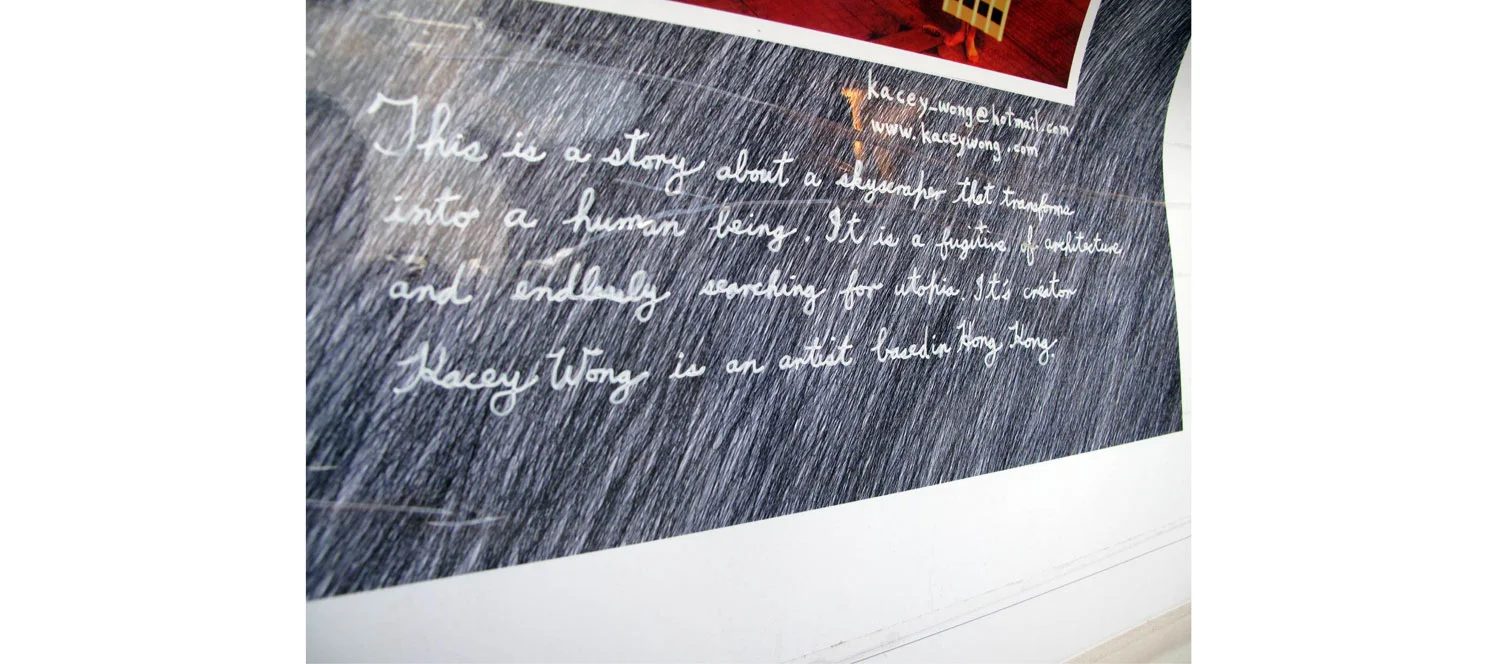 kacey_wong@hotmail.com
www.kaceywong.com
This is a story about a skyscraper that transforms
into a human being. It is a fugitive of architecture
and endlessly searching for utopia. It's creator
Kacey Wong is an artist based in Hong Kong.